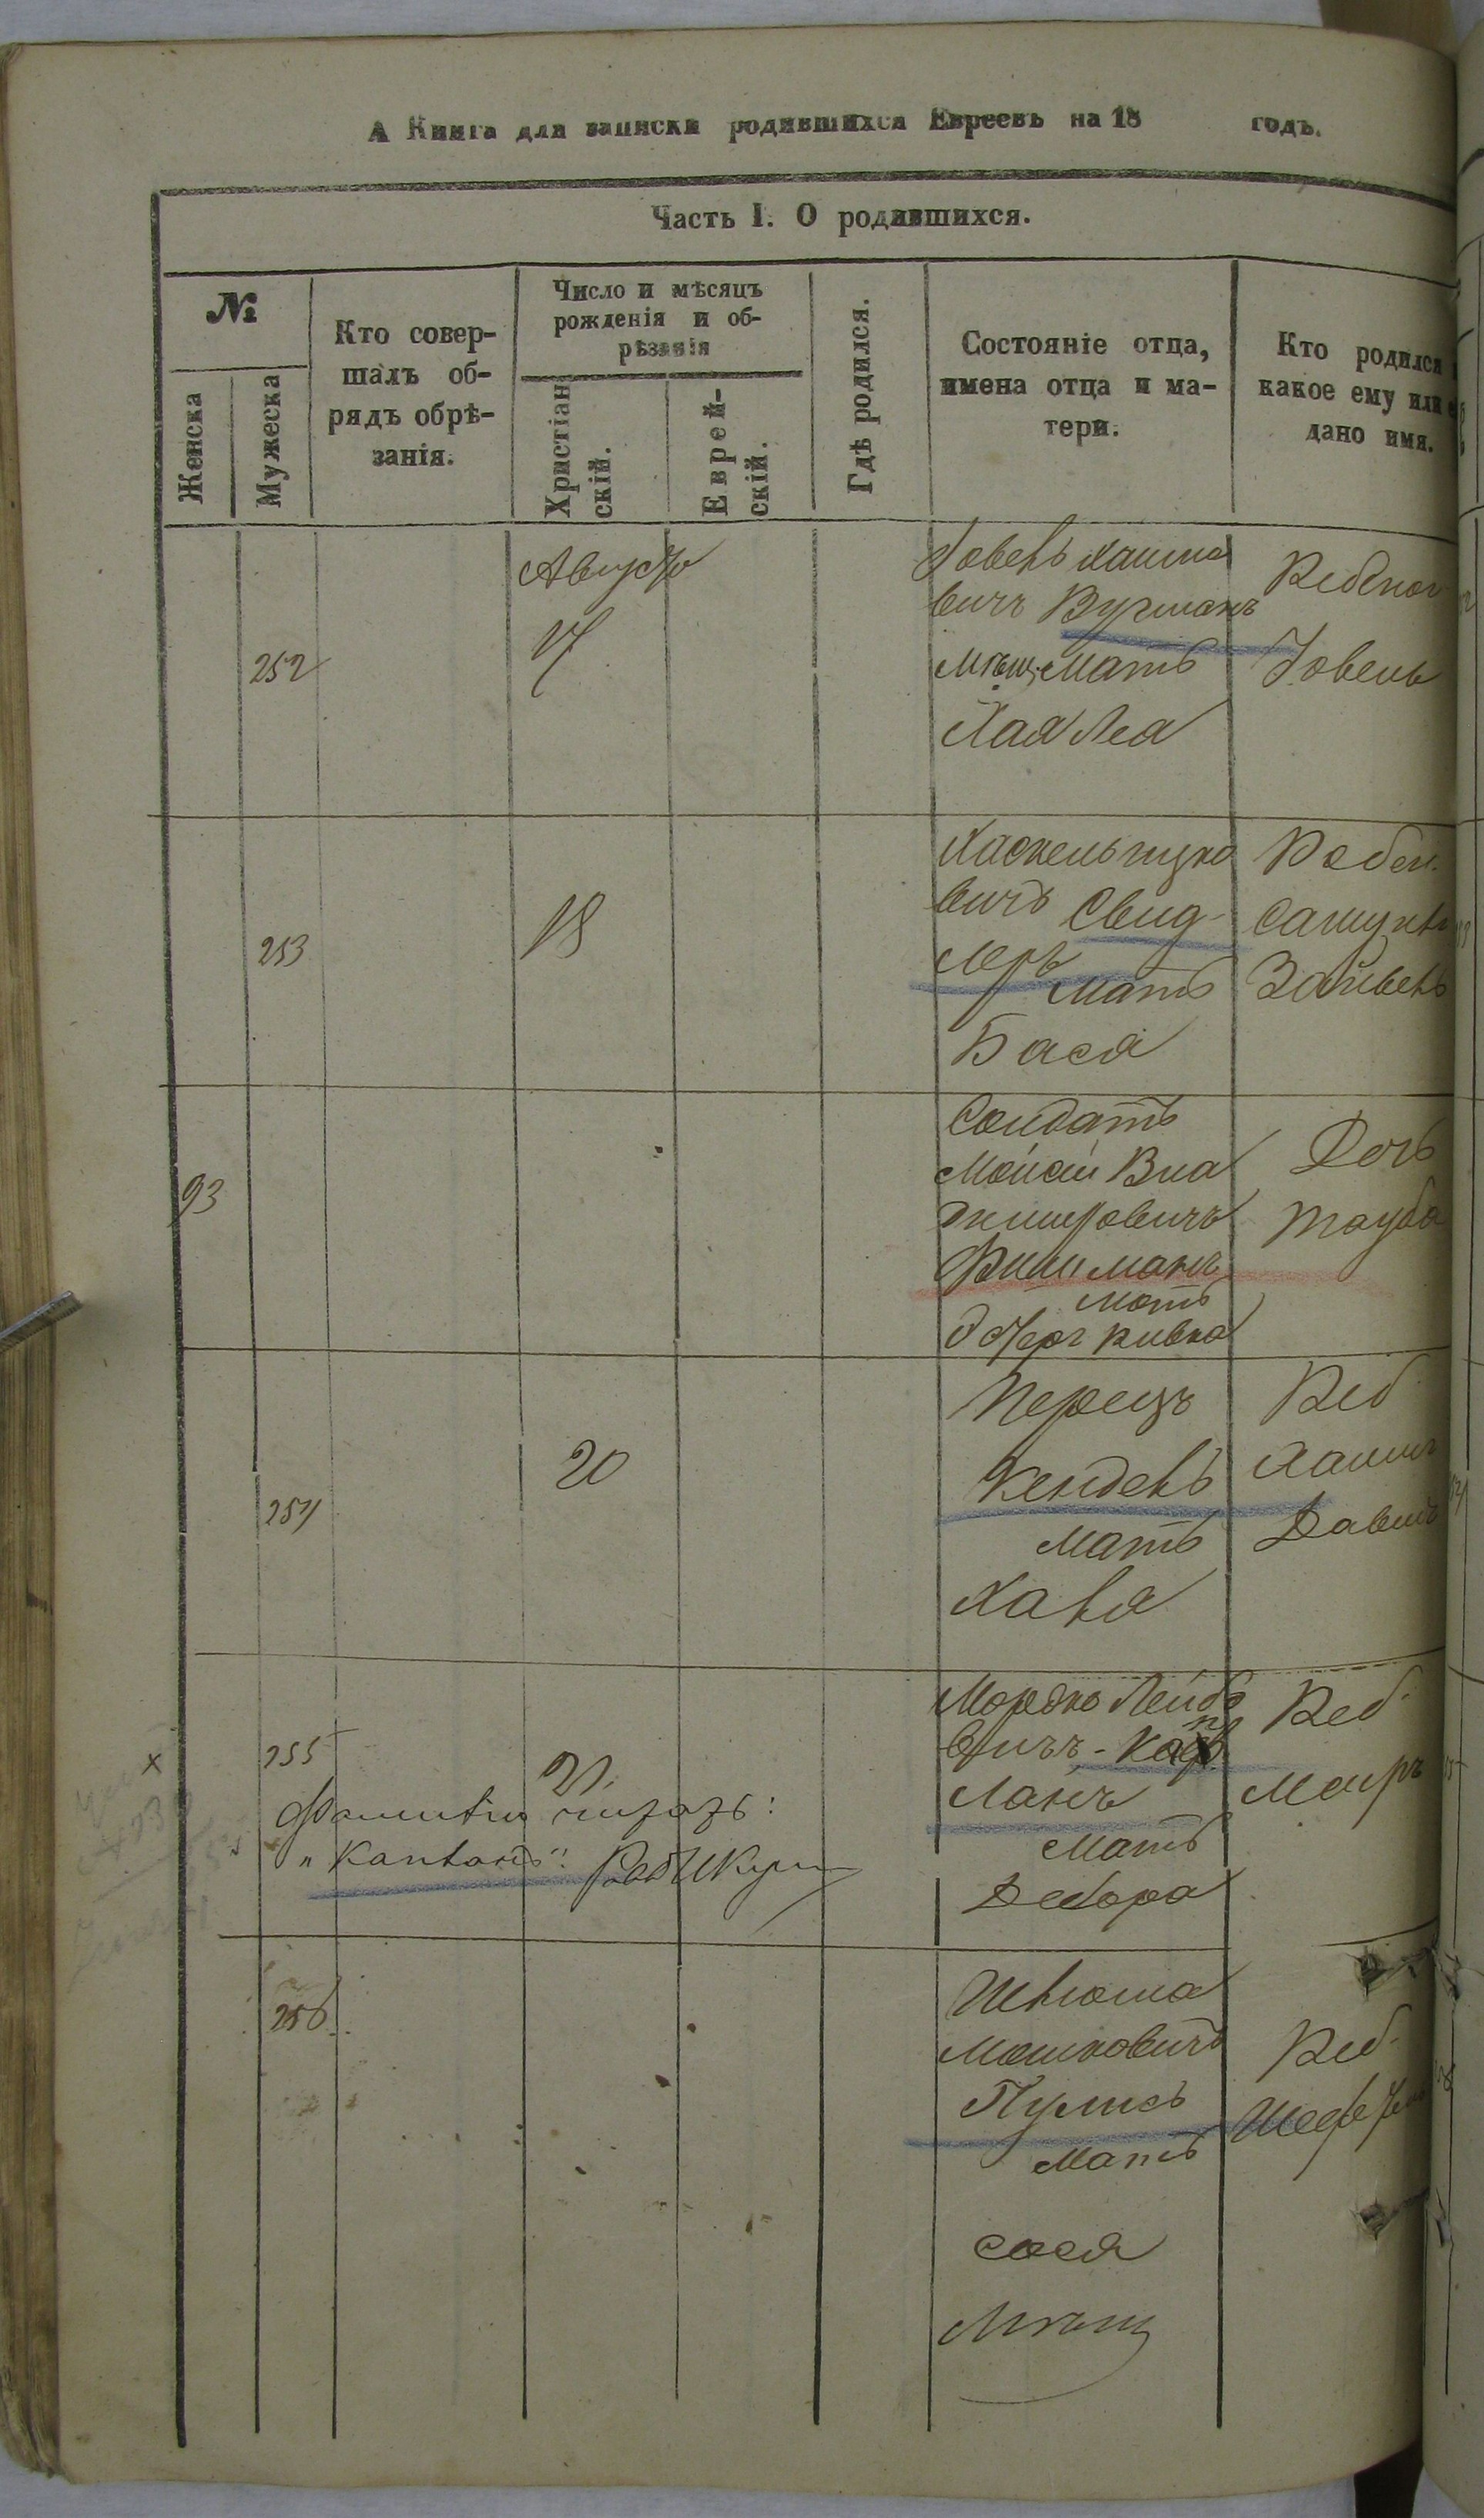 А Книга для записки родившихся Евреевъ на 18 годъ.
Часть I. О родившихся.
№
Женска
Мужеска
Кто совер-
шалъ об-
рядъ обрѣ-
занія.
Число и мѣсяцъ
рожденія и об-
рѣзанія
Христіан
скій.
Еврей-
скій.
Гдѣ родился.
Состояніе отца,
имена отца и ма-
тери.
Кто родился
какое ему или
дано имя.
252
Августа
17
Іовень Хаимо
вичъ Вугманъ
Мѣщ. Мать
Хая Леа
Ребенок
Іовень
253
18
Хаскель Ицко
вичъ Свид-
леръ
Мать
Бася
Ребен.
Самуил
Зайвень
93
Солдатъ
Мойсей Вла
димировичъ
Фишманъ
Мать
Эстеръ Ривка
Дочь
Тауба
254
20
Перецъ
Кенденъ
Мать
Хава
Реб
Хаимъ
Давидъ
255
21.
Фамилію читать:
„Капланъ“.
Мордко Лейбо
вичъ - Кап
ланъ
Мать
Дебора
Реб.
Меиръ
256
Шліома
Мошковичъ
Пулисъ
Мать
Сося
Мѣщ
Реб.